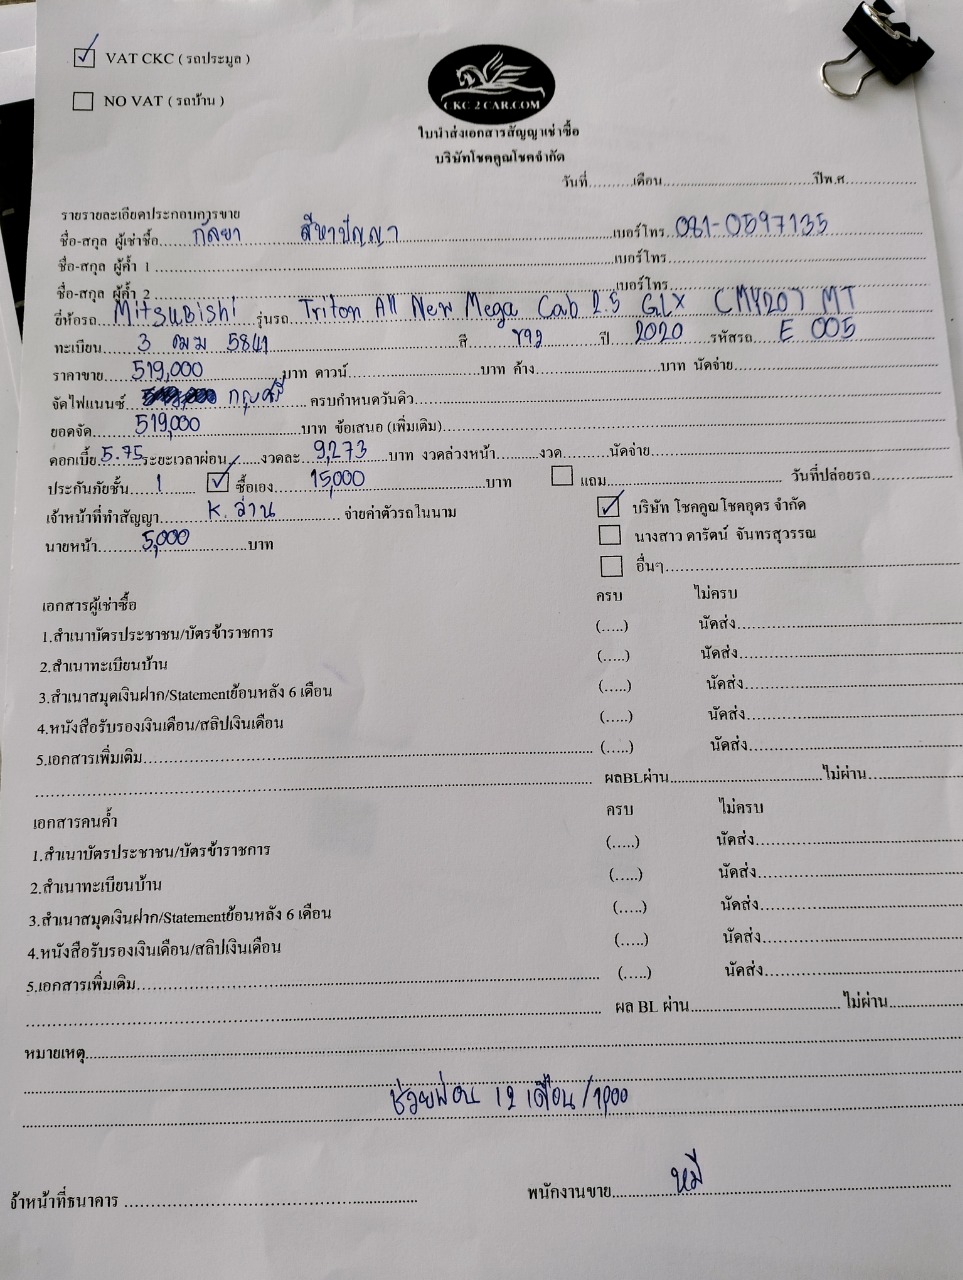 VAT CKC ( รถประมูล )
NO VAT ( รถบ้าน )
CKC 2 CAR.COM
ใบนำส่งเอกสารสัญญาเช่าซื้อ
บริษัทโชคคูณโชคจำกัด
วันที่..........เดือน..................................ปีพ.ศ...............
รายรายละเอียดประกอบการขาย
ชื่อ-สกุล ผู้เช่าซื้อ กัลยา สีหาปัญญา เบอร์โทร 081-0597135
ชื่อ-สกุล ผู้ค้ำ 1 .................... เบอร์โทร..........
ชื่อ-สกุล ผู้ค้ำ 2 .................... เบอร์โทร..........
ยี่ห้อรถ Mitsubishi รุ่นรถ Triton All New Mega Cab 2.5 GLX CM4207 MT
ทะเบียน 3 ฒฆ 5841 สี ขาว ปี 2020 รหัสรถ E 005
ราคาขาย 519,000 บาท ดาวน์..........บาท ค้าง..........บาท นัดจ่าย..........
จัดไฟแนนซ์ กรุงศรี ครบกำหนดวันคิว..........
ยอดจัด 519,000 บาท ข้อเสนอ (เพิ่มเติม)..........
ดอกเบี้ย 5.75 ระยะเวลาผ่อน.......งวดละ 9,273 บาท งวดล่วงหน้า..........งวด..........นัดจ่าย..........
ประกันภัยชั้น 1 ซื้อเอง 15,000 บาท แถม.......... วันที่ปล่อยรถ..........
เจ้าหน้าที่ทำสัญญา K. ว่าน จ่ายค่าตัวรถในนาม บริษัท โชคคูณโชคอุดร จำกัด
นายหน้า 5,000 บาท นางสาว ดารัตน์ จันทรสุวรรณ
อื่นๆ..........
เอกสารผู้เช่าซื้อ ครบ ไม่ครบ
1.สำเนาบัตรประชาชน/บัตรข้าราชการ (.....) นัดส่ง..........
2.สำเนาทะเบียนบ้าน (.....) นัดส่ง..........
3.สำเนาสมุดเงินฝาก/Statementย้อนหลัง 6 เดือน (.....) นัดส่ง..........
4.หนังสือรับรองเงินเดือน/สลิปเงินเดือน (.....) นัดส่ง..........
5.เอกสารเพิ่มเติม.......... (.....) นัดส่ง..........
.......... ผลBLผ่าน..........ไม่ผ่าน..........
เอกสารคนค้ำ ครบ ไม่ครบ
1.สำเนาบัตรประชาชน/บัตรข้าราชการ (.....) นัดส่ง..........
2.สำเนาทะเบียนบ้าน (.....) นัดส่ง..........
3.สำเนาสมุดเงินฝาก/Statementย้อนหลัง 6 เดือน (.....) นัดส่ง..........
4.หนังสือรับรองเงินเดือน/สลิปเงินเดือน (.....) นัดส่ง..........
5.เอกสารเพิ่มเติม.......... (.....) นัดส่ง..........
.......... ผล BL ผ่าน..........ไม่ผ่าน..........
หมายเหตุ..........
ช่วยผ่อน 12 เดือน/1,000
จ้าหน้าที่ธนาคาร .......... พนักงานขาย หมี